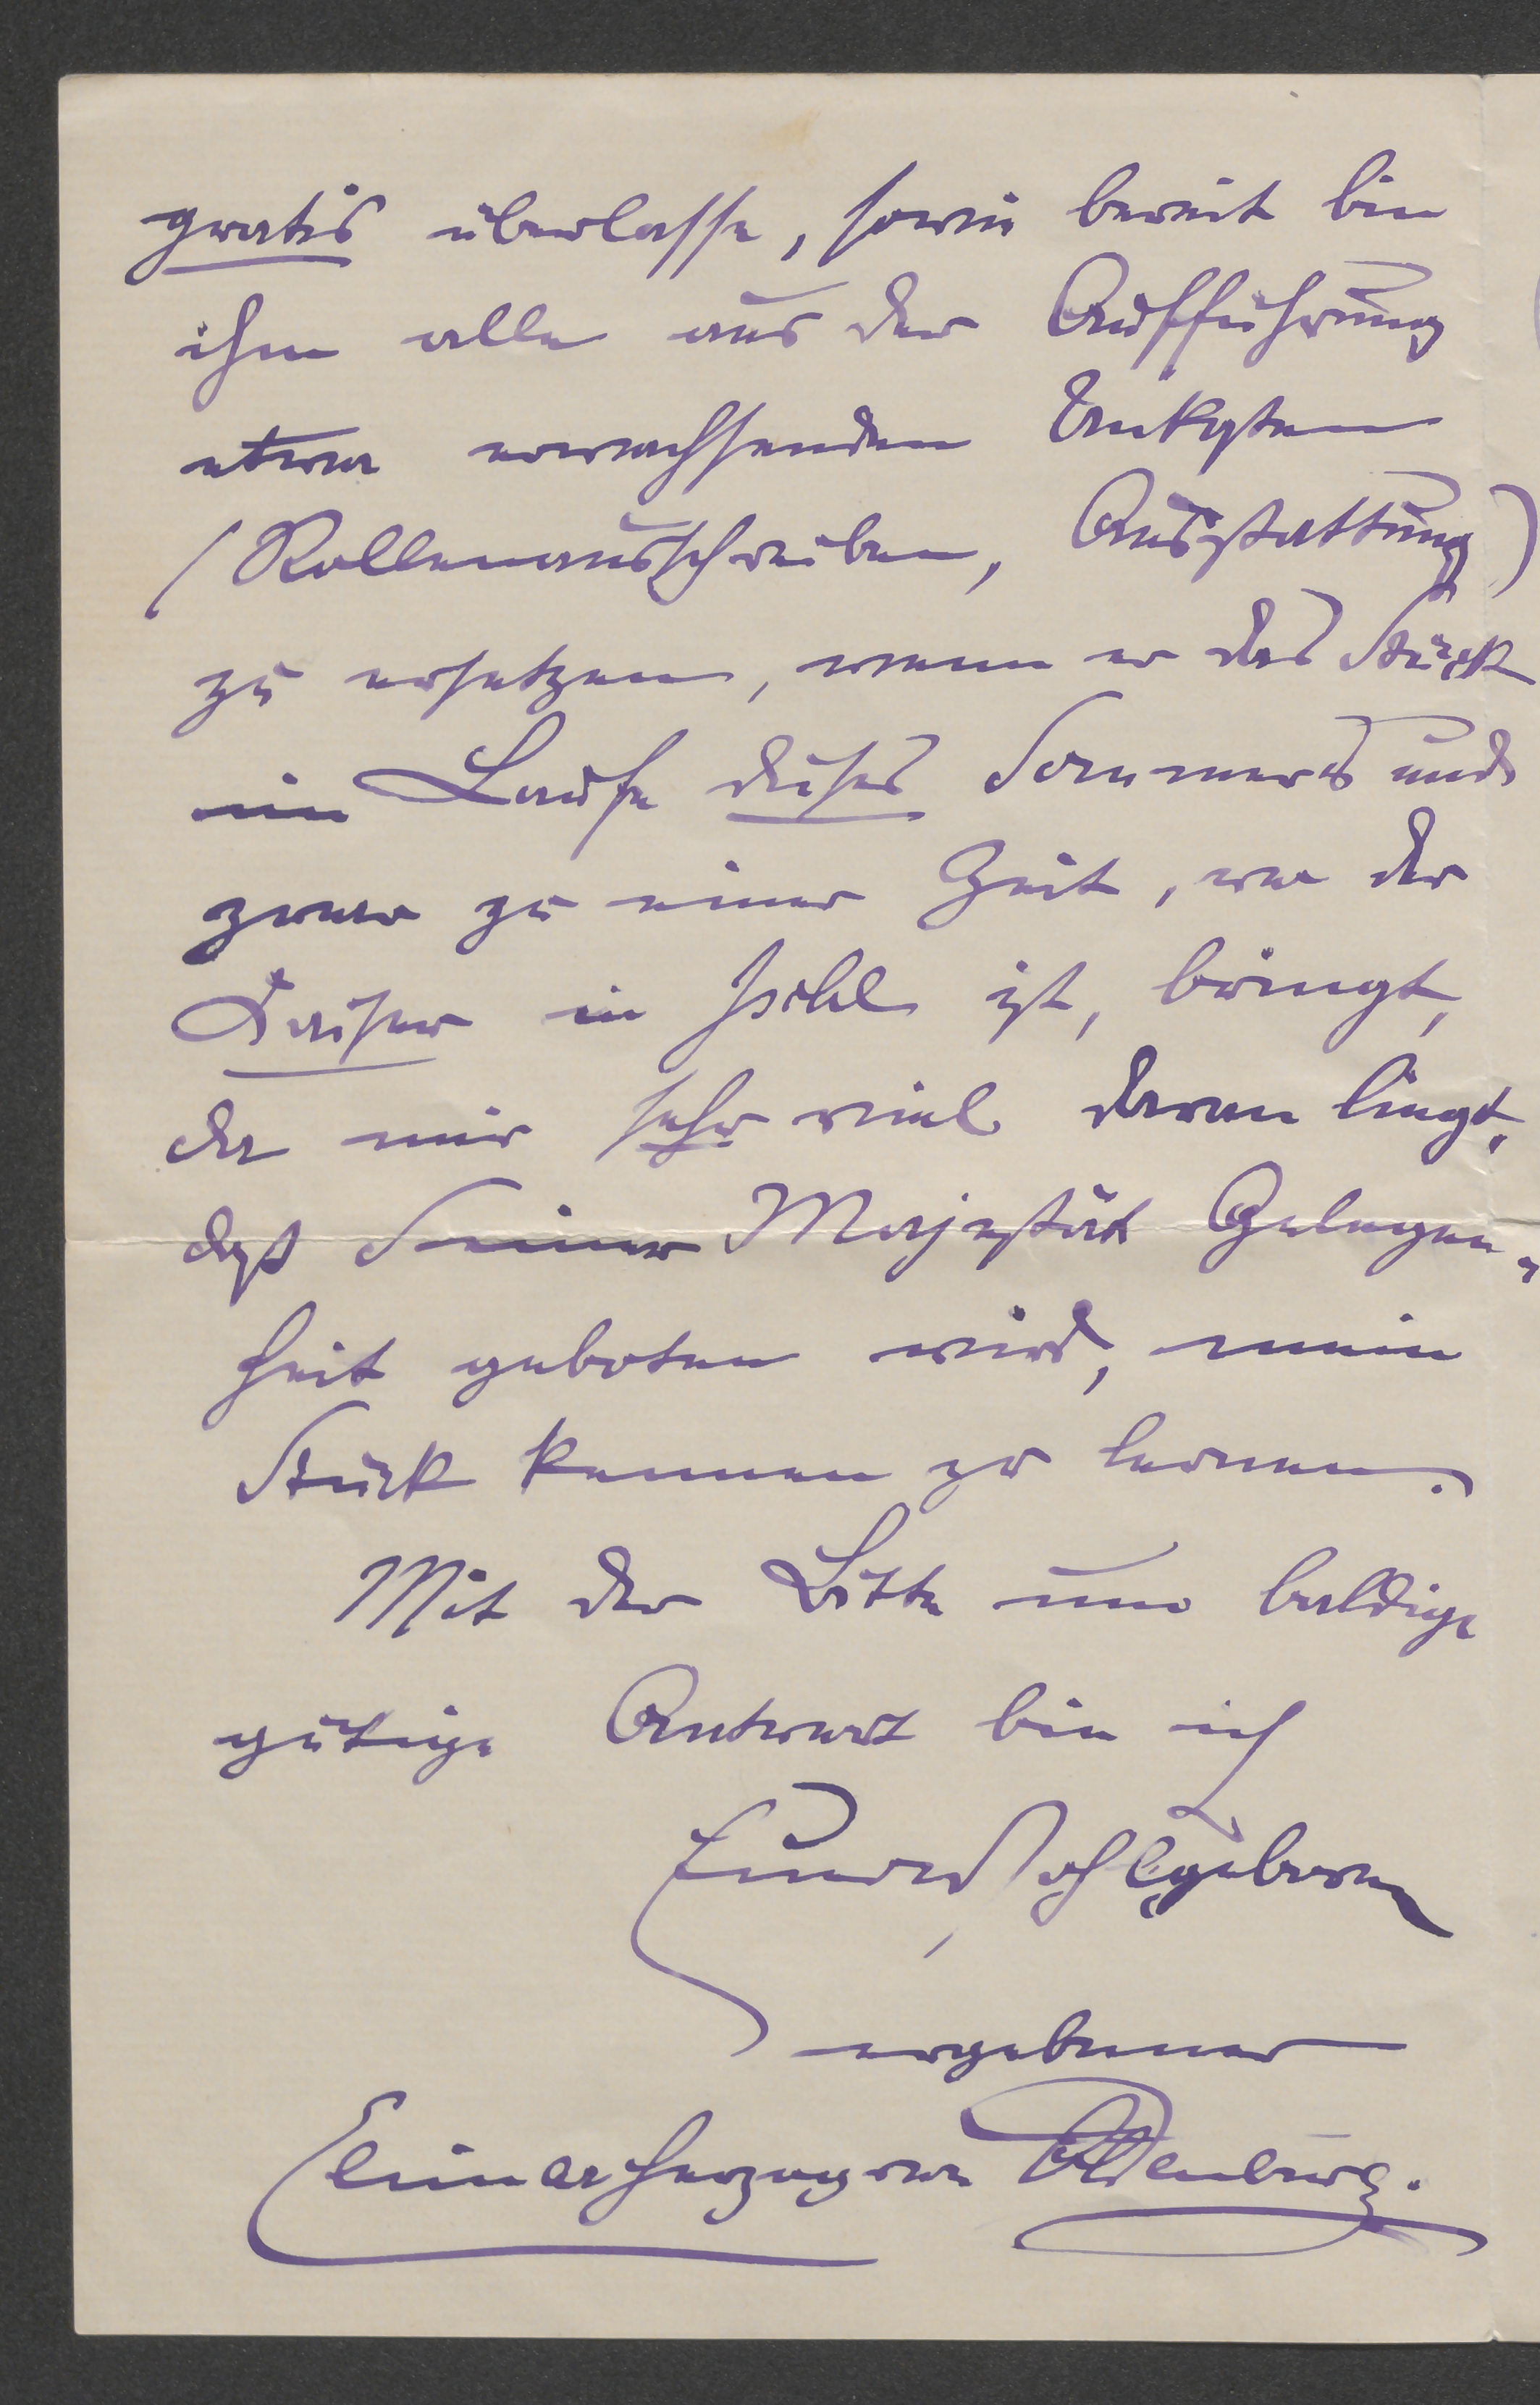 gratis überlasse, sowie bereit bin
ihm alle aus der Aufführung
etwa erwachsenden Unkosten
(Rollenausschreiben, Ausstattung)
zu ersetzen, wenn er das Stück
im Laufe dieses Sommers und
zwar zu einer Zeit, wo der
Kaiser in Ischl ist, bringt,
da mir sehr viel daran liegt,
daß Seiner Majestät Gelegen-
heit geboten wird, mein
Stück kennen zu lernen.
Mit der Bitte um baldige
gütige Antwort bin ich
Euer Wohlgeboren
ergebener
Elimar Herzog von Oldenburg.